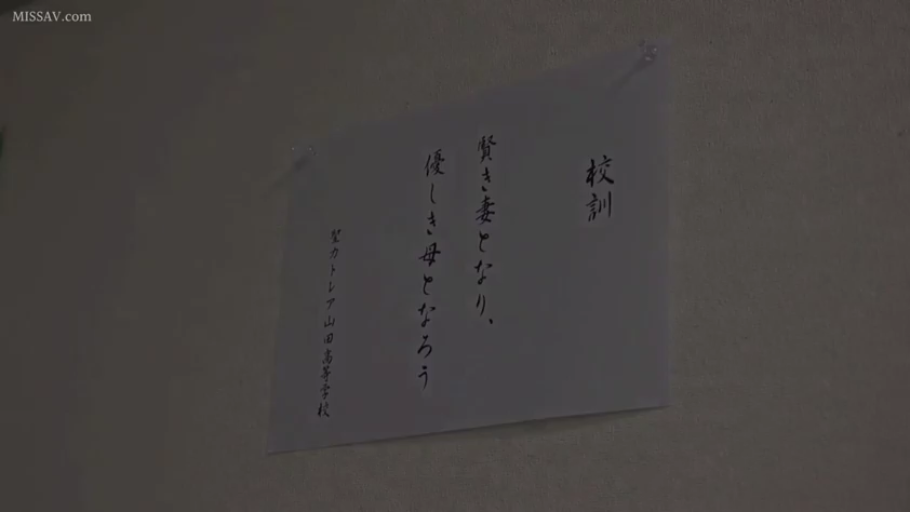 MISSAV.com
校訓
賢き妻となり、
優しき母となろう
聖カトレア山田高等学校